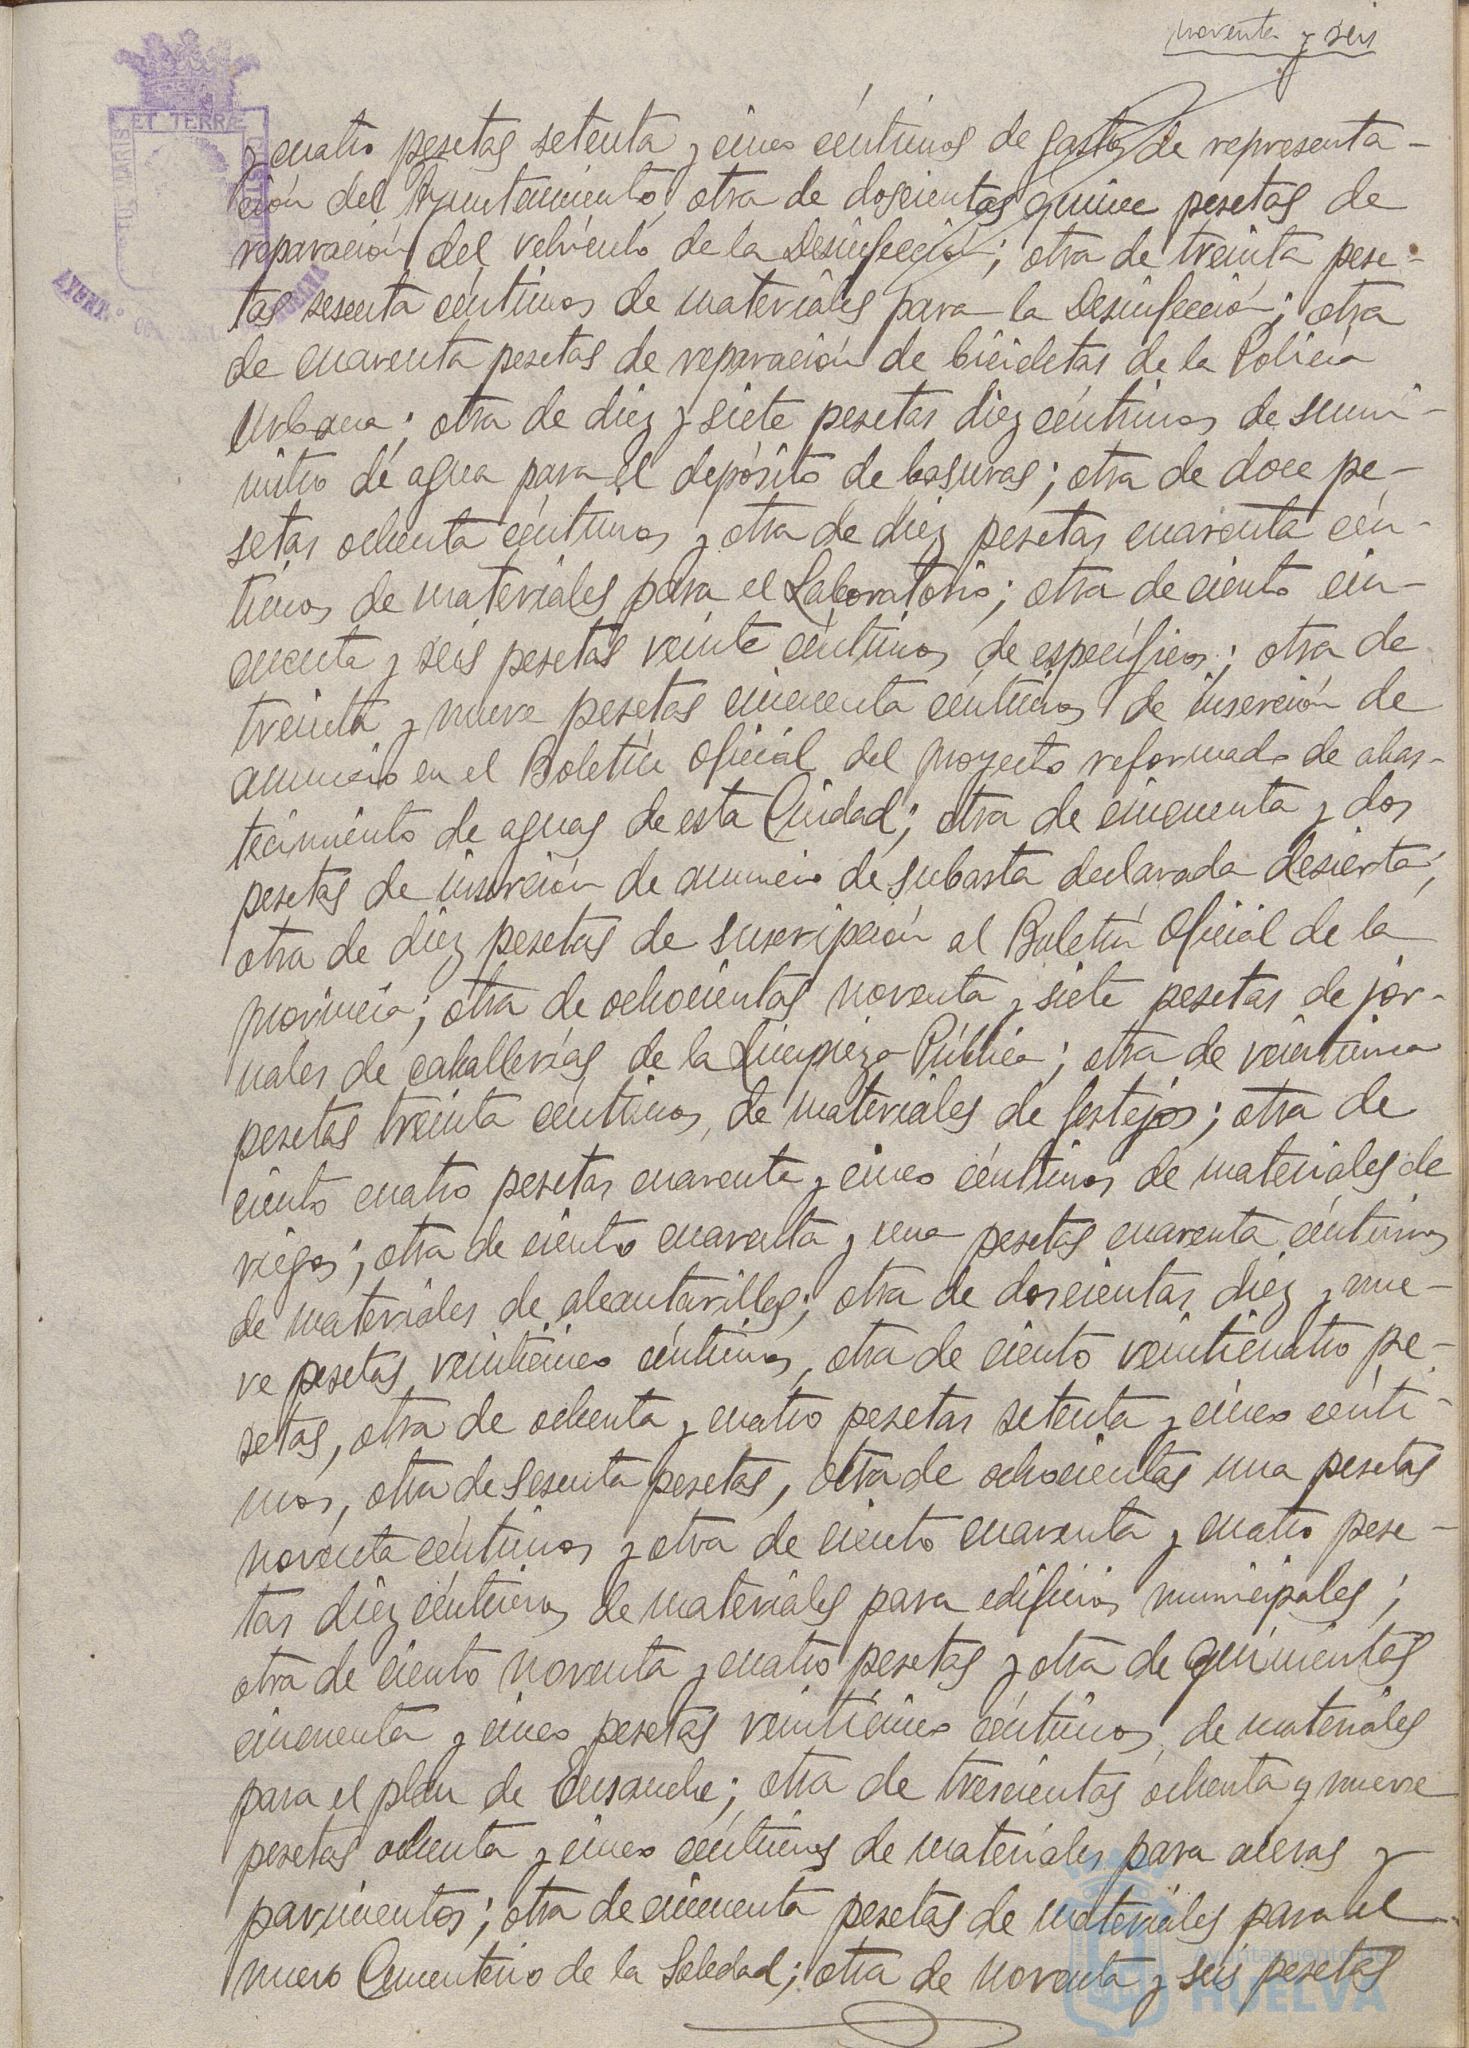 noventa y seis
y cuatro pesetas setenta y cinco céntimos de gastos de representa-
ción del Ayuntamiento, otra de doscientas quince pesetas de
reparación del vehículo de la Desinfección; otra de treinta pese-
tas sesenta céntimos de materiales para la Desinfección; otra
de cuarenta pesetas de reparación de bicicletas de la Policía
Urbana; otra de diez y siete pesetas diez céntimos de sumi-
nistro de agua para el depósito de basuras; otra de doce pe-
setas ochenta céntimos y otra de diez pesetas cuarenta cén-
timos de materiales para el Laboratorio; otra de ciento cin-
cuenta y seis pesetas veinte céntimos de específicos; otra de
treinta y nueve pesetas cincuenta céntimos de inserción de
anuncio en el Boletín Oficial del proyecto reformado de abas-
tecimiento de aguas de esta Ciudad; otra de cincuenta y dos
pesetas de inserción de anuncio de subasta declarada desierta;
otra de diez pesetas de suscripción al Boletín Oficial de la
provincia; otra de ochocientas noventa y siete pesetas de jor-
nales de caballerías de la Limpieza Pública; otra de veintiuna
pesetas treinta céntimos de materiales de festejos; otra de
ciento cuatro pesetas cuarenta y cinco céntimos de materiales de
riegos; otra de ciento cuarenta y una pesetas cuarenta céntimos
de materiales de alcantarillas; otra de doscientas diez y nue-
ve pesetas veinticinco céntimos, otra de ciento veinticuatro pe-
setas, otra de ochenta y cuatro pesetas setenta y cinco cénti-
mos, otra de sesenta pesetas, otra de ochocientas una pesetas
noventa céntimos y otra de ciento cuarenta y cuatro pese-
tas diez céntimos de materiales para edificios municipales;
otra de ciento noventa y cuatro pesetas y otra de quinientas
cincuenta y cinco pesetas veinticinco céntimos de materiales
para el plan de Ensanche; otra de trescientas ochenta y nueve
pesetas ochenta y cinco céntimos de materiales para aceras y
pavimentos; otra de cincuenta pesetas de materiales para el
nuevo Cementerio de la Soledad; otra de noventa y seis pesetas
ET TERRÆ
AYUNT.º
Ayuntamiento de
HUELVA